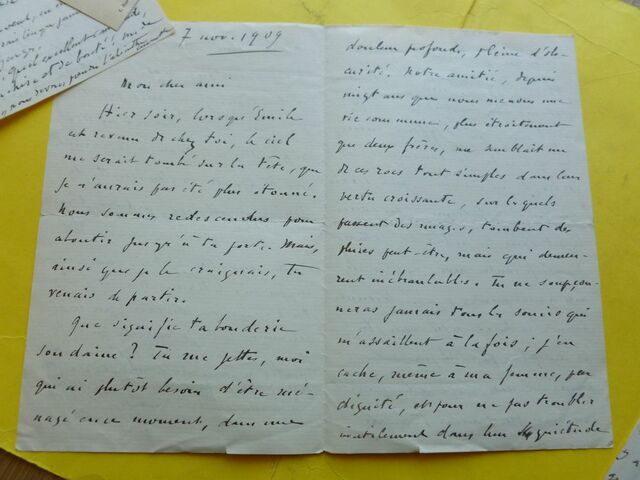 7 nov. 1909
Mon cher ami
Hier soir, lorsque Emile
est revenu de chez toi, le ciel
me serait tombé sur la tête, que
je n'aurais pas été plus étonné.
Nous sommes redescendus pour
aboutir jusqu'à ta porte. Mais,
ainsi que je le craignais, tu
venais de partir.
Que signifie ta bouderie
soudaine ? Tu me jettes, moi
qui ai plutôt besoin d'être mé-
nagé en ce moment, dans une
douleur profonde, pleine d'obs-
curité. Notre amitié, depuis
vingt ans que nous menons une
vie commune, plus étroitement
que deux frères, me semblait un
de ces rocs tout simples dans leur
vertu croissante, sur lesquels
passent des nuages, tombent des
pluies peut-être, mais qui demeu-
rent inébranlables. Tu ne soupçon-
neras jamais tous les soucis qui
m'assaillent à la fois ; j'en
cache, même à ma femme, par
dignité, et pour ne pas troubler
inutilement dans leur quiétude